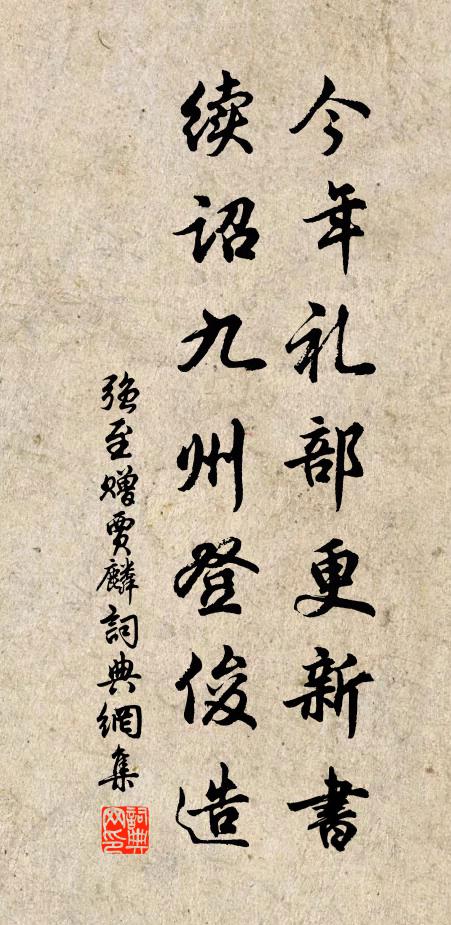 今年礼部更新書
续诏九州登俊造
强至赠贾麟詞典網集
詞典网印